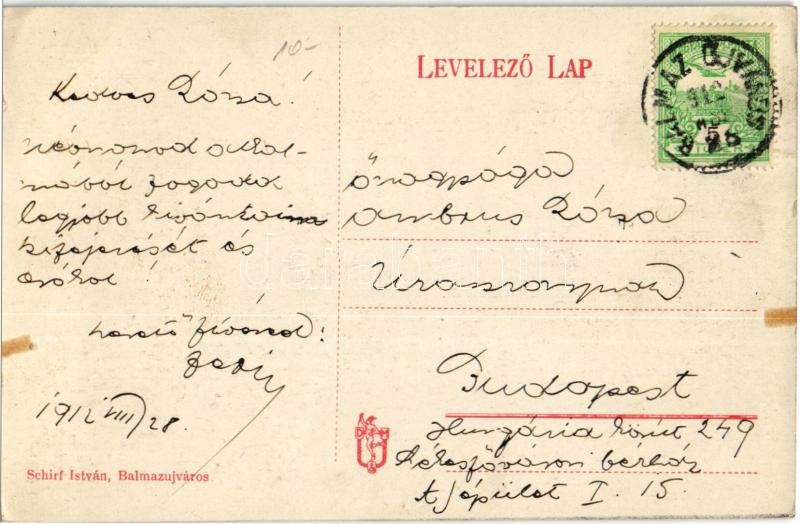 10-
Kedves Rózsa!
névnapod alkal-
mából fogadd
legjobb kívánataim
kifejezését és
csókol!
szerető fivéred:
1912 VIII/28.
Schirf István, Balmazujváros
LEVELEZŐ LAP
BALMAZ ÚJVÁROS
912
őnagysága
Ambrus Rózsa
Úrasszonynak
Budapest
Hungária körút 249
Székesfővárosi bérház
A épület I. 15.
D M
darabanth